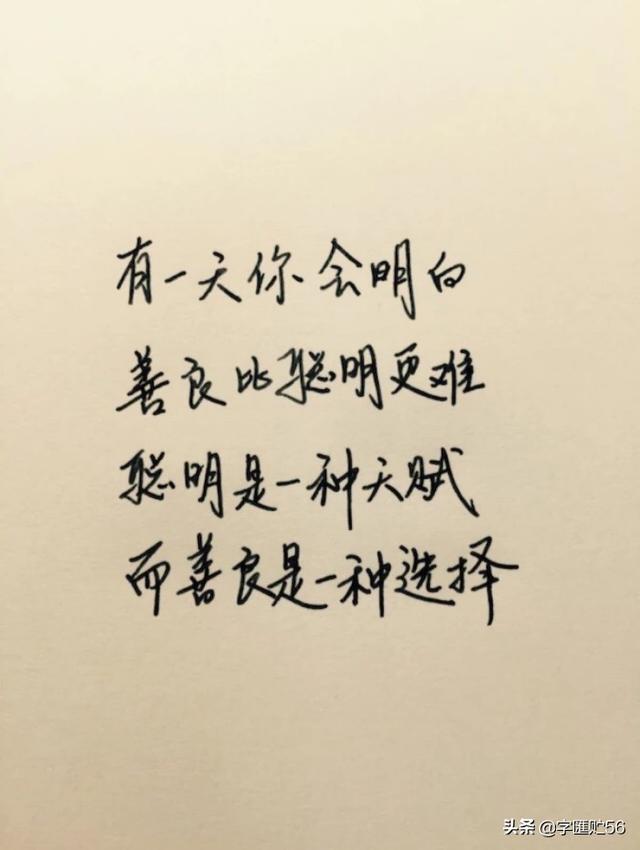 有一天你会明白
善良比聪明更难
聪明是一种天赋
而善良是一种选择
头条 @字匯贮56